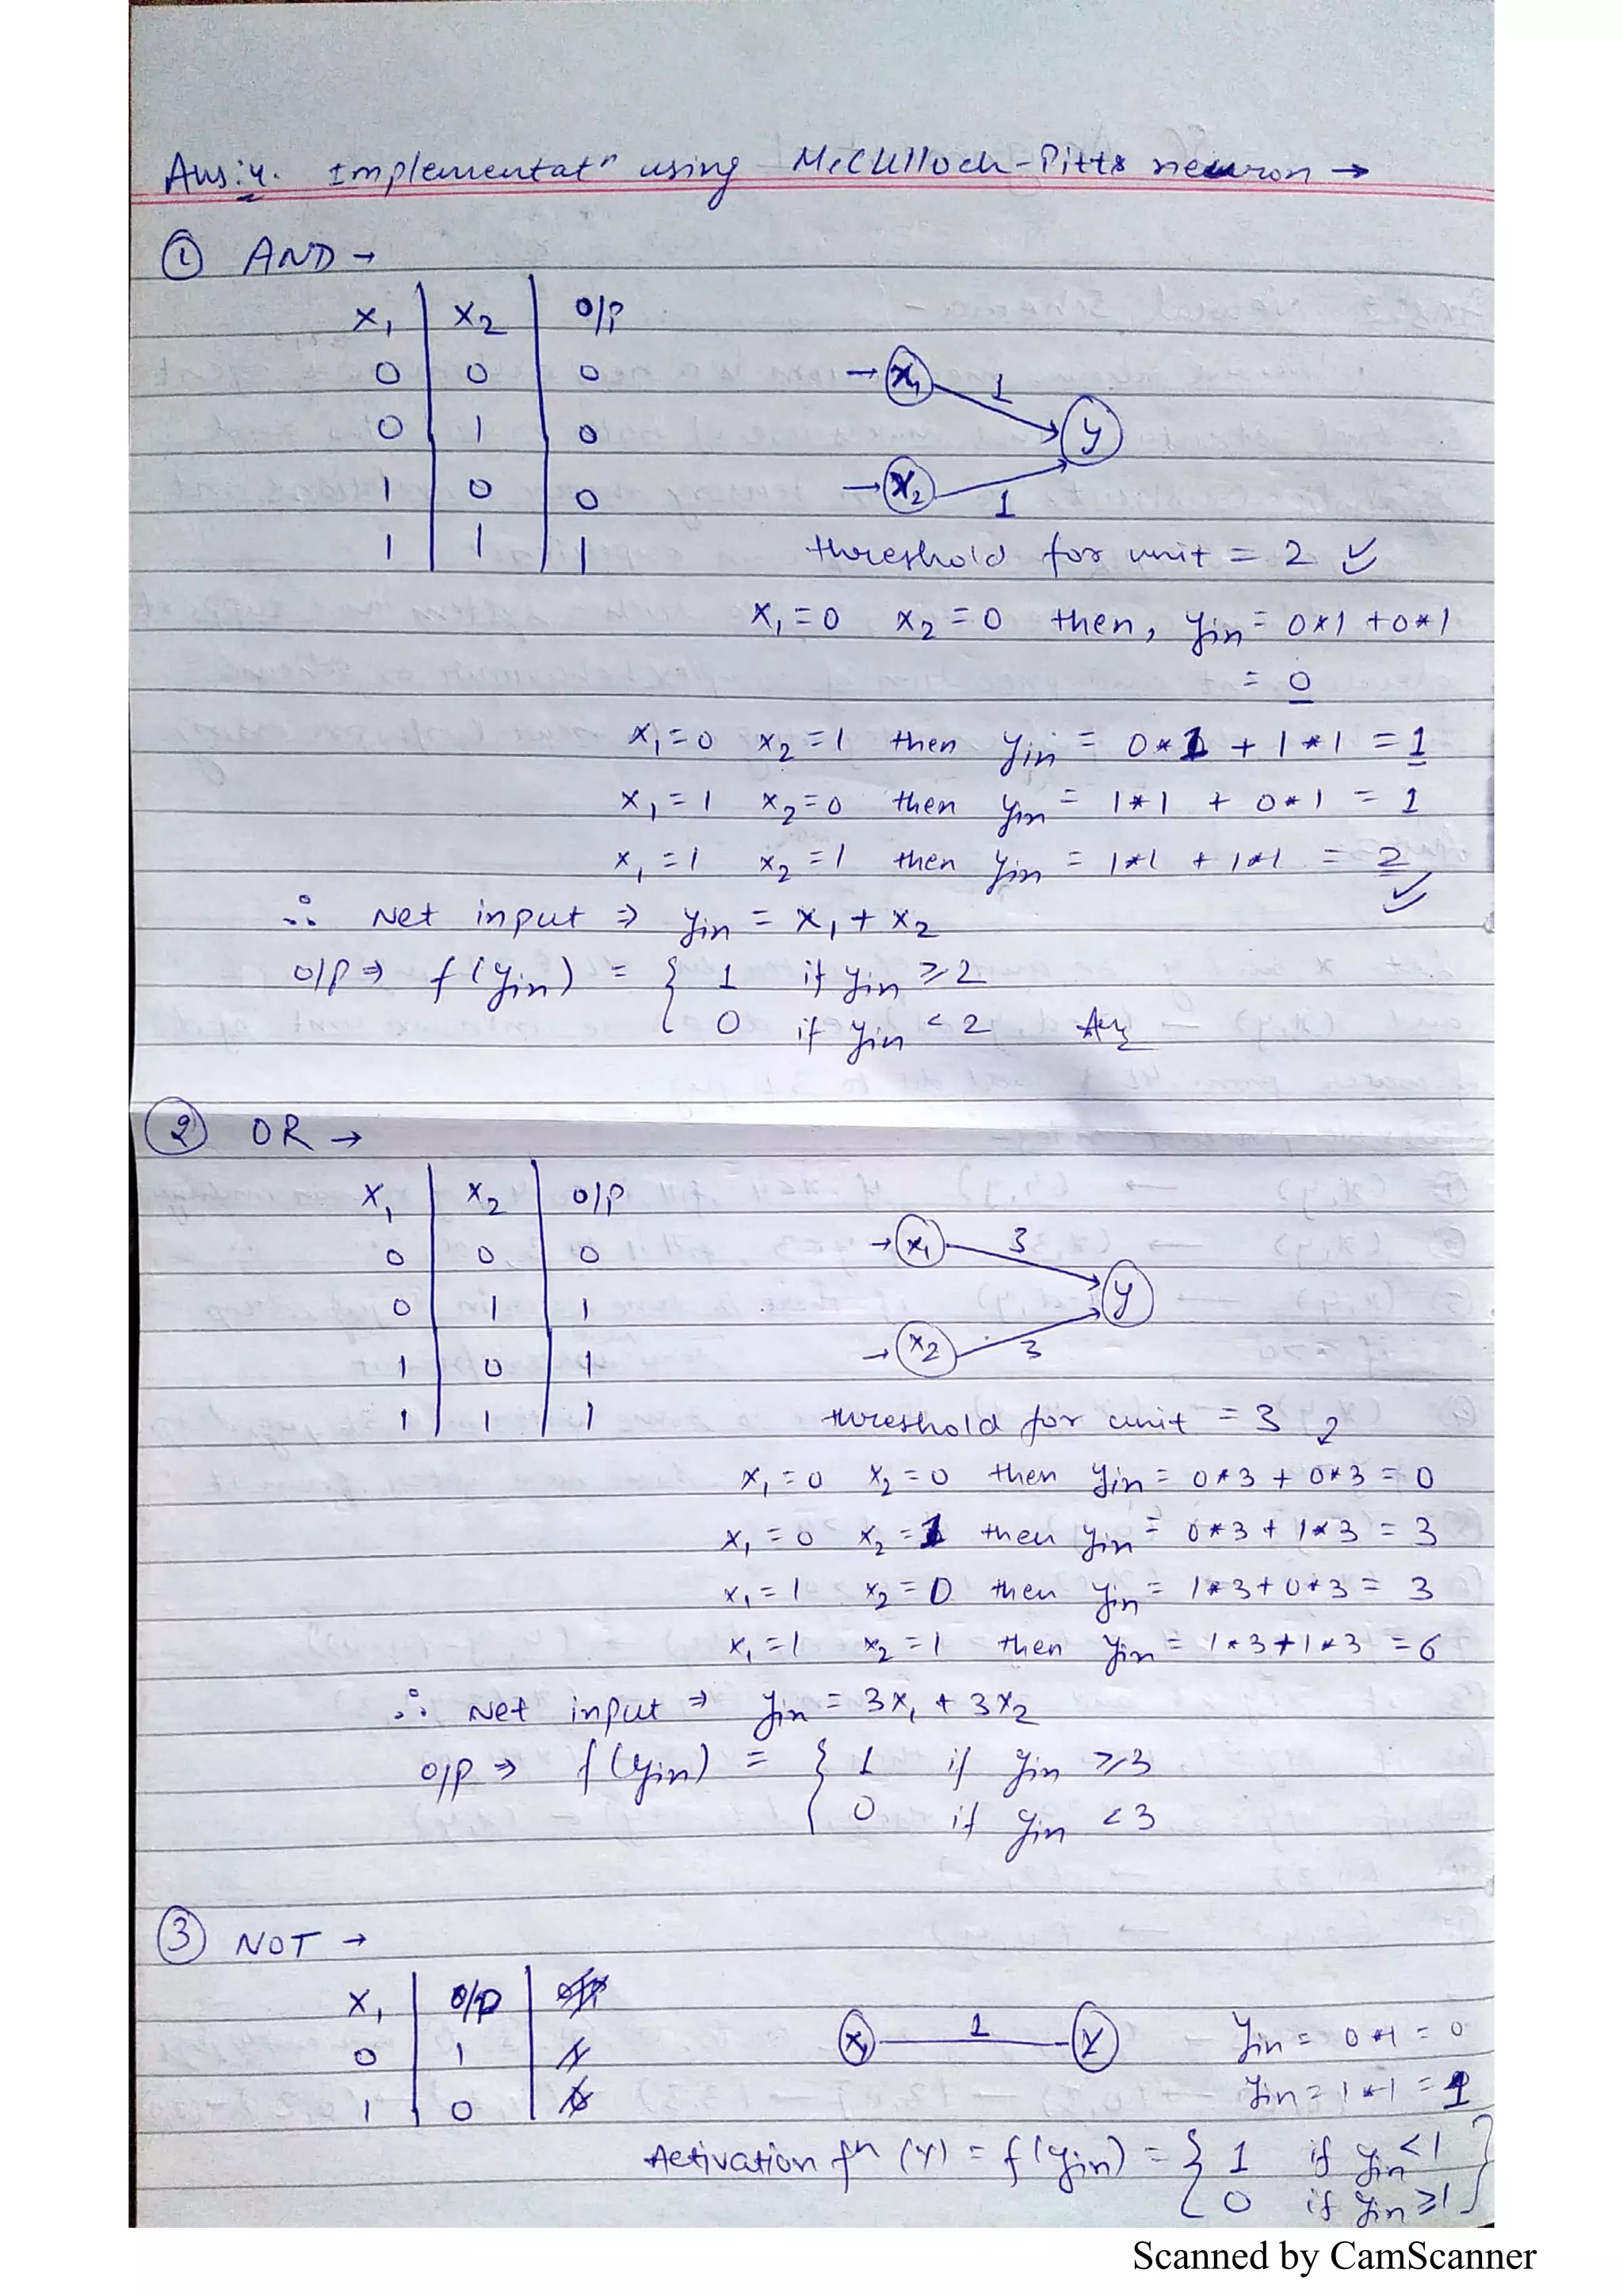 Ans:4. Implementatⁿ using McCulloch-Pitts neuron →
① AND →
x₁ | x₂ | o/p
0 | 0 | 0
0 | 1 | 0
1 | 0 | 0
1 | 1 | 1
→ x₁ 1
y
→ x₂ 1
threshold for unit = 2 ✓
x₁ = 0 x₂ = 0 then, yin = 0*1 + 0*1
= 0
x₁ = 0 x₂ = 1 then yin = 0*1 + 1*1 = 1
x₁ = 1 x₂ = 0 then yin = 1*1 + 0*1 = 1
x₁ = 1 x₂ = 1 then yin = 1*1 + 1*1 = 2
∴ Net input ⇒ yin = x₁ + x₂
o/p ⇒ f(yin) = { 1 if yin ≥ 2
0 if yin < 2 Ans
② OR →
x₁ | x₂ | o/p
0 | 0 | 0
0 | 1 | 1
1 | 0 | 1
1 | 1 | 1
→ x₁ 3
y
→ x₂ 3
threshold for unit = 3
x₁ = 0 x₂ = 0 then yin = 0*3 + 0*3 = 0
x₁ = 0 x₂ = 1 then yin = 0*3 + 1*3 = 3
x₁ = 1 x₂ = 0 then yin = 1*3 + 0*3 = 3
x₁ = 1 x₂ = 1 then yin = 1*3 + 1*3 = 6
∴ Net input ⇒ yin = 3x₁ + 3x₂
o/p ⇒ f(yin) = { 1 if yin ≥ 3
0 if yin < 3
③ NOT →
x₁ | o/p
0 | 1
1 | 0
x₁ 1 y
yin = 0*1 = 0
yin = 1*1 = 1
Activation fⁿ (y) = f(yin) = { 1 if yin < 1
0 if yin ≥ 1 }
Scanned by CamScanner